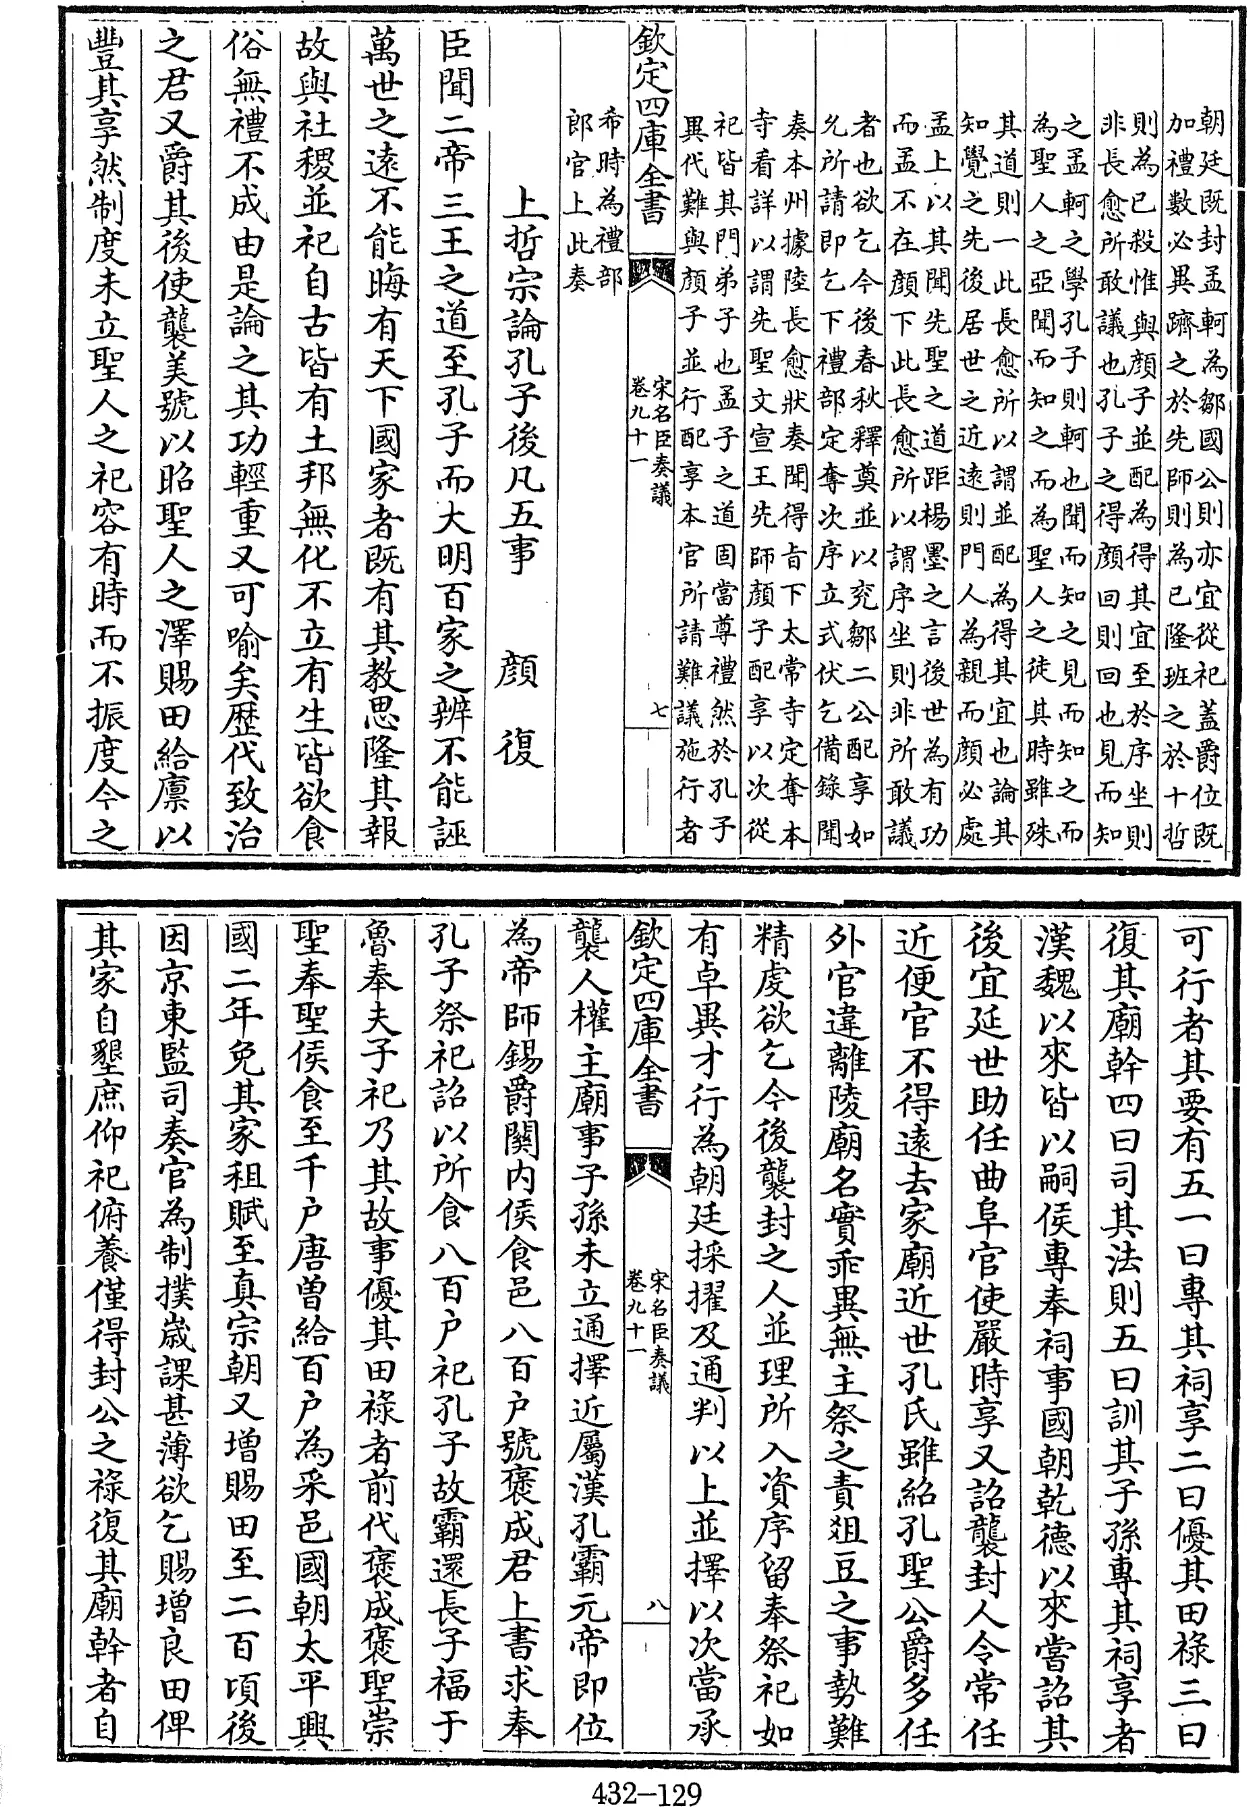 朝廷既封孟軻為鄒國公則亦宜從祀蓋爵位既
加禮數必異躋之於先師則為已隆班之於十哲
則為已殺惟與顔子並配為得其宜至於序坐則
非長愈所敢議也孔子之得顔回則回也見而知
之孟軻之學孔子則軻也聞而知之見而知之而
為聖人之亞聞而知之而為聖人之徒其時雖殊
其道則一此長愈所以謂並配為得其宜也論其
知覺之先後居世之近遠則門人為親而顔必處
孟上以其聞先聖之道距楊墨之言後世為有功
而孟不在顔下此長愈所以謂序坐則非所敢議
者也欲乞今後春秋釋奠並以兖鄒二公配享如
允所請即乞下禮部定奪次序立式伏乞備錄聞
奏本州據陸長愈狀奏聞得旨下太常寺定奪本
寺看詳以謂先聖文宣王先師顔子配享以次從
祀皆其門弟子也孟子之道固當尊禮然於孔子
異代難與顔子並行配享本官所請難議施行者
欽定四庫全書
宋名臣奏議
卷九十一
七
希時為禮部
郎官上此奏
上哲宗論孔子後凡五事 顔復
臣聞二帝三王之道至孔子而大明百家之辨不能誣
萬世之遠不能晦有天下國家者既有其教思隆其報
故與社稷並祀自古皆有土邦無化不立有生皆欲食
俗無禮不成由是論之其功輕重又可喻矣歴代致治
之君又爵其後使襲美號以昭聖人之澤賜田給廪以
豐其享然制度未立聖人之祀容有時而不振度今之
可行者其要有五一曰專其祠享二曰優其田祿三曰
復其廟幹四曰司其法則五曰訓其子孫專其祠享者
漢魏以來皆以嗣侯專奉祠事國朝乾德以來嘗詔其
後宜延世助任曲阜官使嚴時享又詔襲封人令常任
近便官不得逺去家廟近世孔氏雖紹孔聖公爵多任
外官違離陵廟名實乖異無主祭之責俎豆之事勢難
精䖍欲乞今後襲封之人並理所入資序留奉祭祀如
有卓異才行為朝廷採擢及通判以上並擇以次當承
欽定四庫全書
宋名臣奏議
卷九十一
八
襲人權主廟事子孫未立通擇近屬漢孔霸元帝即位
為帝師錫爵關内侯食邑八百戸號褒成君上書求奉
孔子祭祀詔以所食八百戸祀孔子故霸還長子福于
魯奉夫子祀乃其故事優其田祿者前代褒成褒聖崇
聖奉聖侯食至千戸唐曽給百戸為采邑國朝太平興
國二年免其家租賦至真宗朝又增賜田至二百頃後
因京東監司奏官為制撲歲課甚薄欲乞賜增良田俾
其家自墾庶仰祀俯養僅得封公之祿復其廟幹者自
432-129